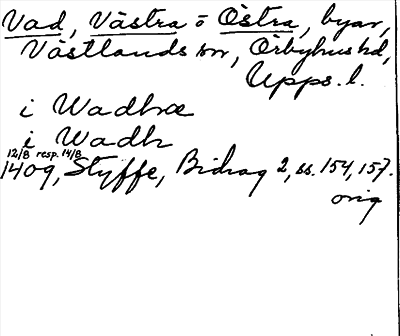 Vad, Västra o Östra, byar,
Västlands sn, Örbyhus hd,
Upps. l.
i Wadhæ
i Wadh
12/8 resp. 14/8
1409, Styffe, Bidrag 2, ss. 154, 157.
orig